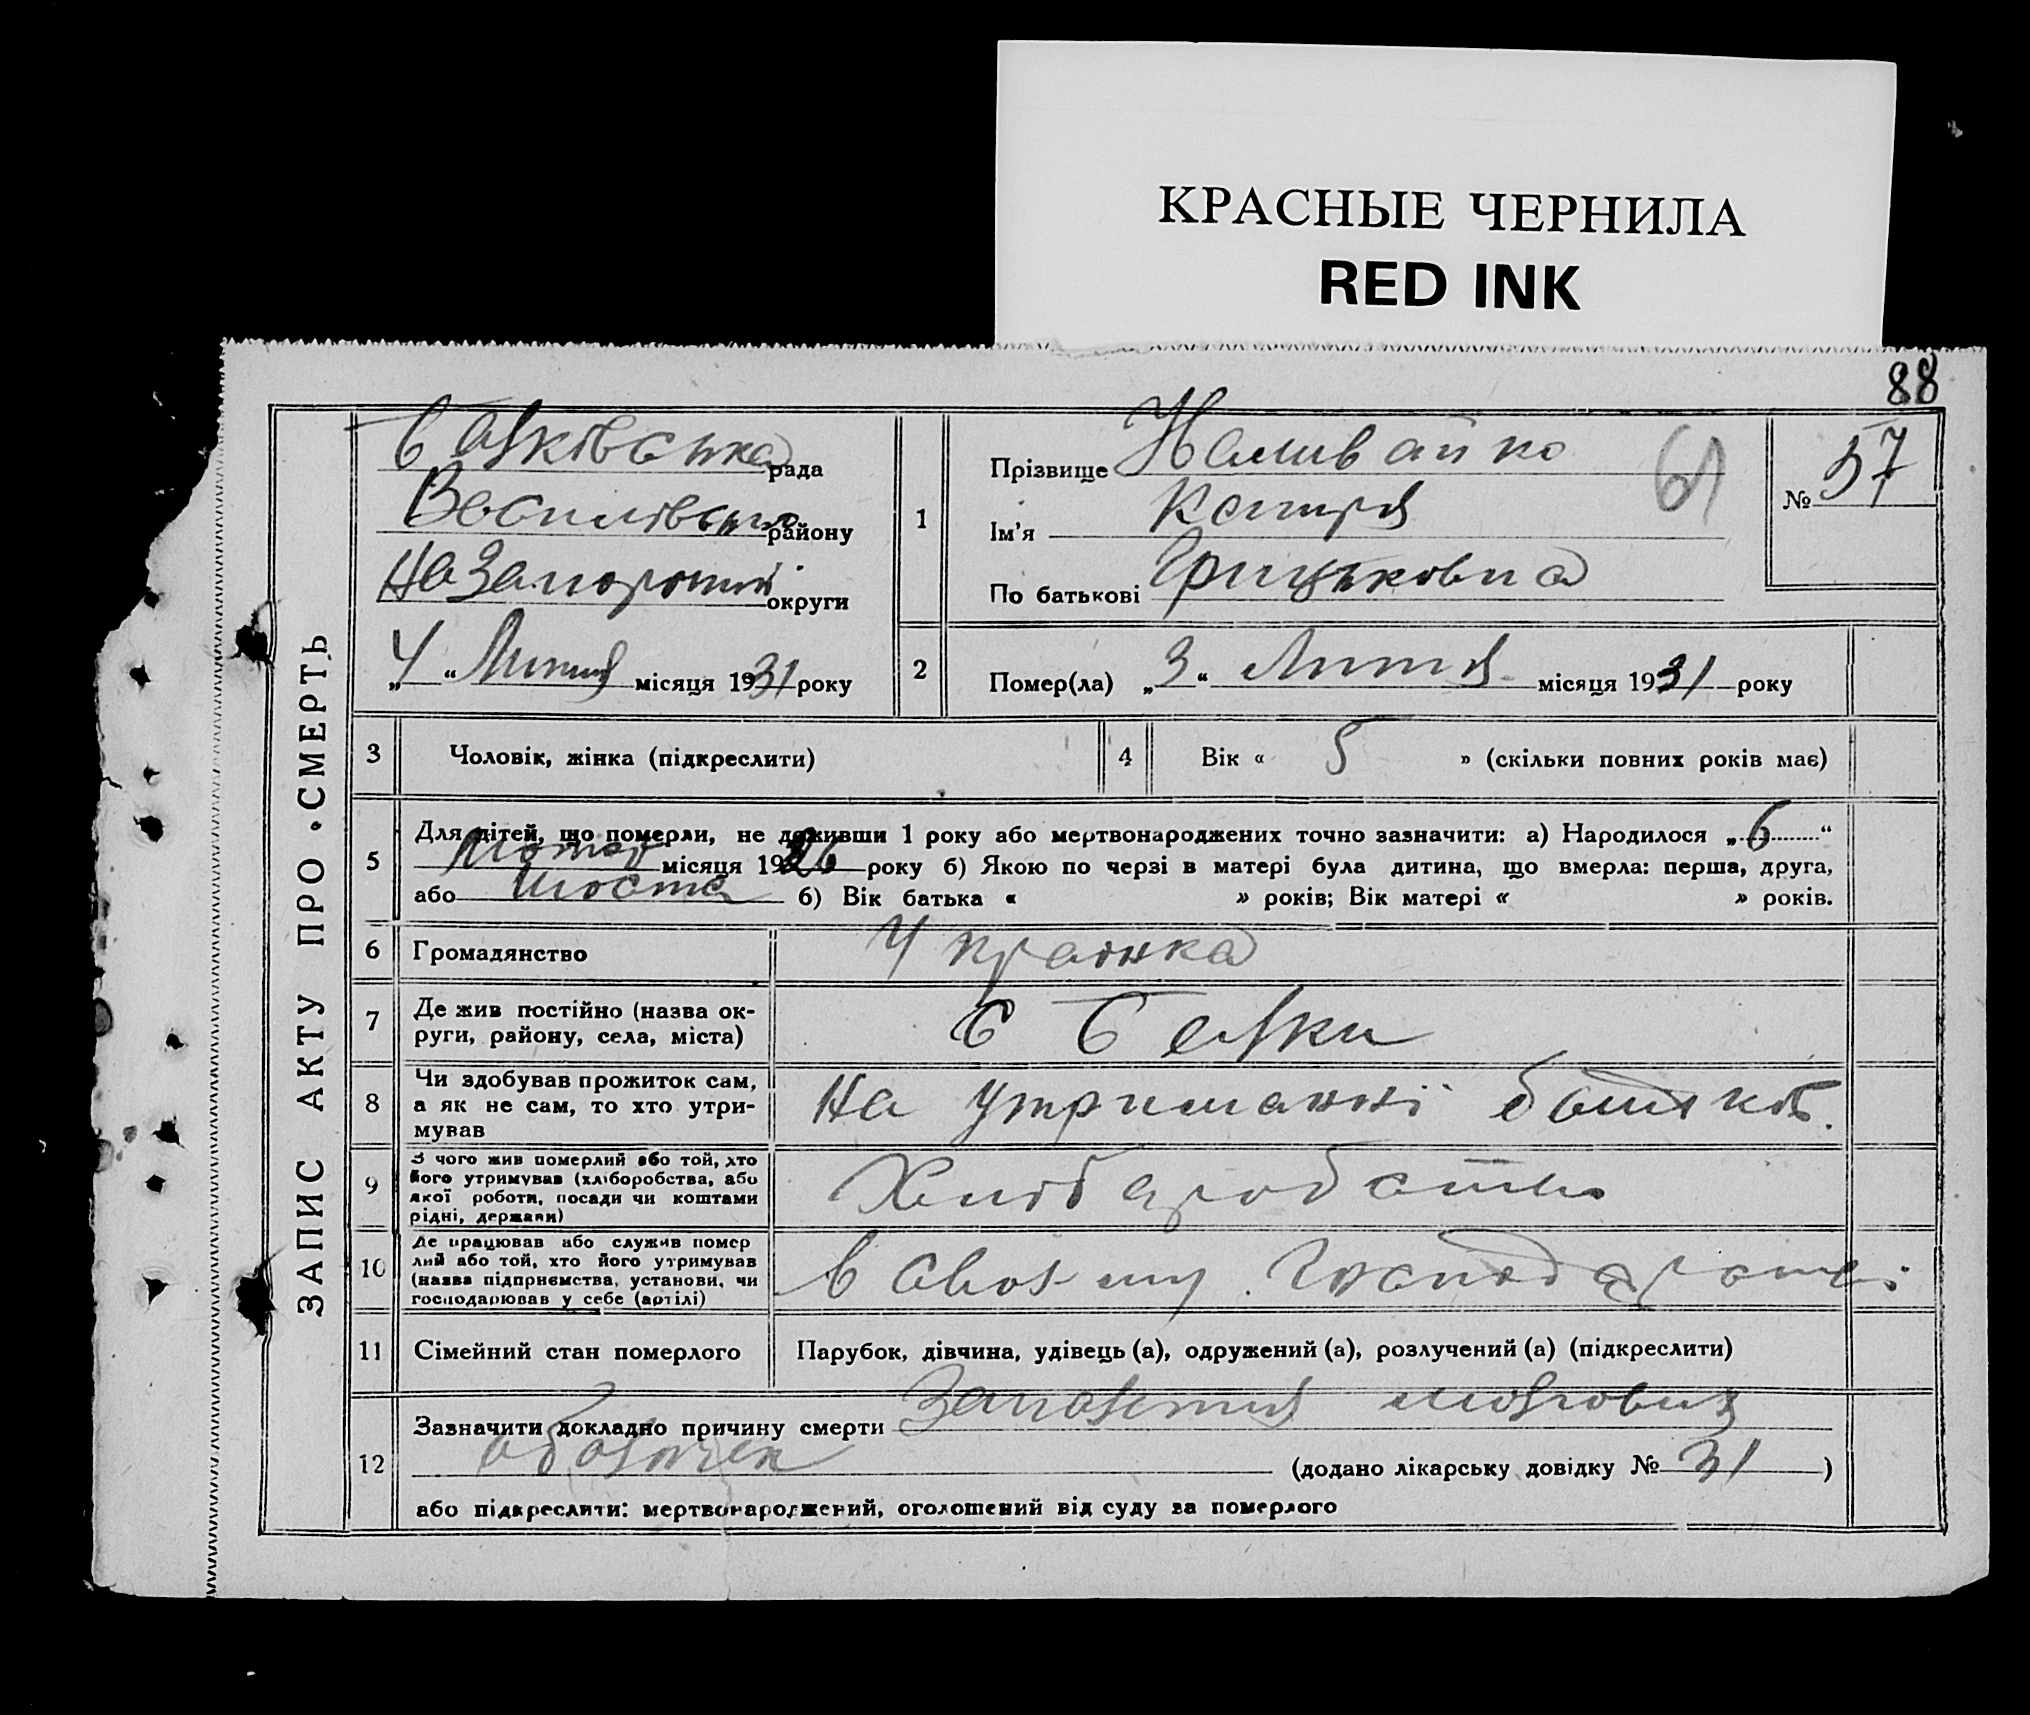 КРАСНЫЕ ЧЕРНИЛА
RED INK
88
ЗАПИС АКТУ ПРО СМЕРТЬ
Балківська рада
Василівськ району
На Запоріжжі округи
„ 4 “ Лютня місяця 1931 року
1
Прізвище Наливайко
Ім'я
По батькові Грицьковна
№ 57
2
Помер(ла) „ 3 “ Лютня місяця 1931 року
3 Чоловік, жінка (підкреслити)
4 Вік « 5 » (скільки повних років має)
5 Для дітей, що померли, не доживши 1 року або мертвонароджених точно зазначити: а) Народилося „ 6 “
місяця 1926 року б) Якою по черзі в матері була дитина, що вмерла: перша, друга,
або шоста б) Вік батька « » років; Вік матері « » років.
6 Громадянство Украінка
7 Де жив постійно (назва округи, району, села, міста) с Балки
8 Чи здобував прожиток сам, а як не сам, то хто утримував На утриманні батьків.
9 З чого жив померлий або той, хто його утримував (хліборобства, або якої роботи, посади чи коштами рідні, держави) Хліборобство
10 Де працював або служив померлий або той, хто його утримував (назва підприємства, установи, чи господарював у себе (артілі) В своєму господарстві
11 Сімейний стан померлого Парубок, дівчина, удівець (а), одружений (а), розлучений (а) (підкреслити)
12 Зазначити докладно причину смерти Запалення мозгових
оболочек (додано лікарську довідку № 31 )
або підкреслити: мертвонароджений, оголошений від суду за померлого